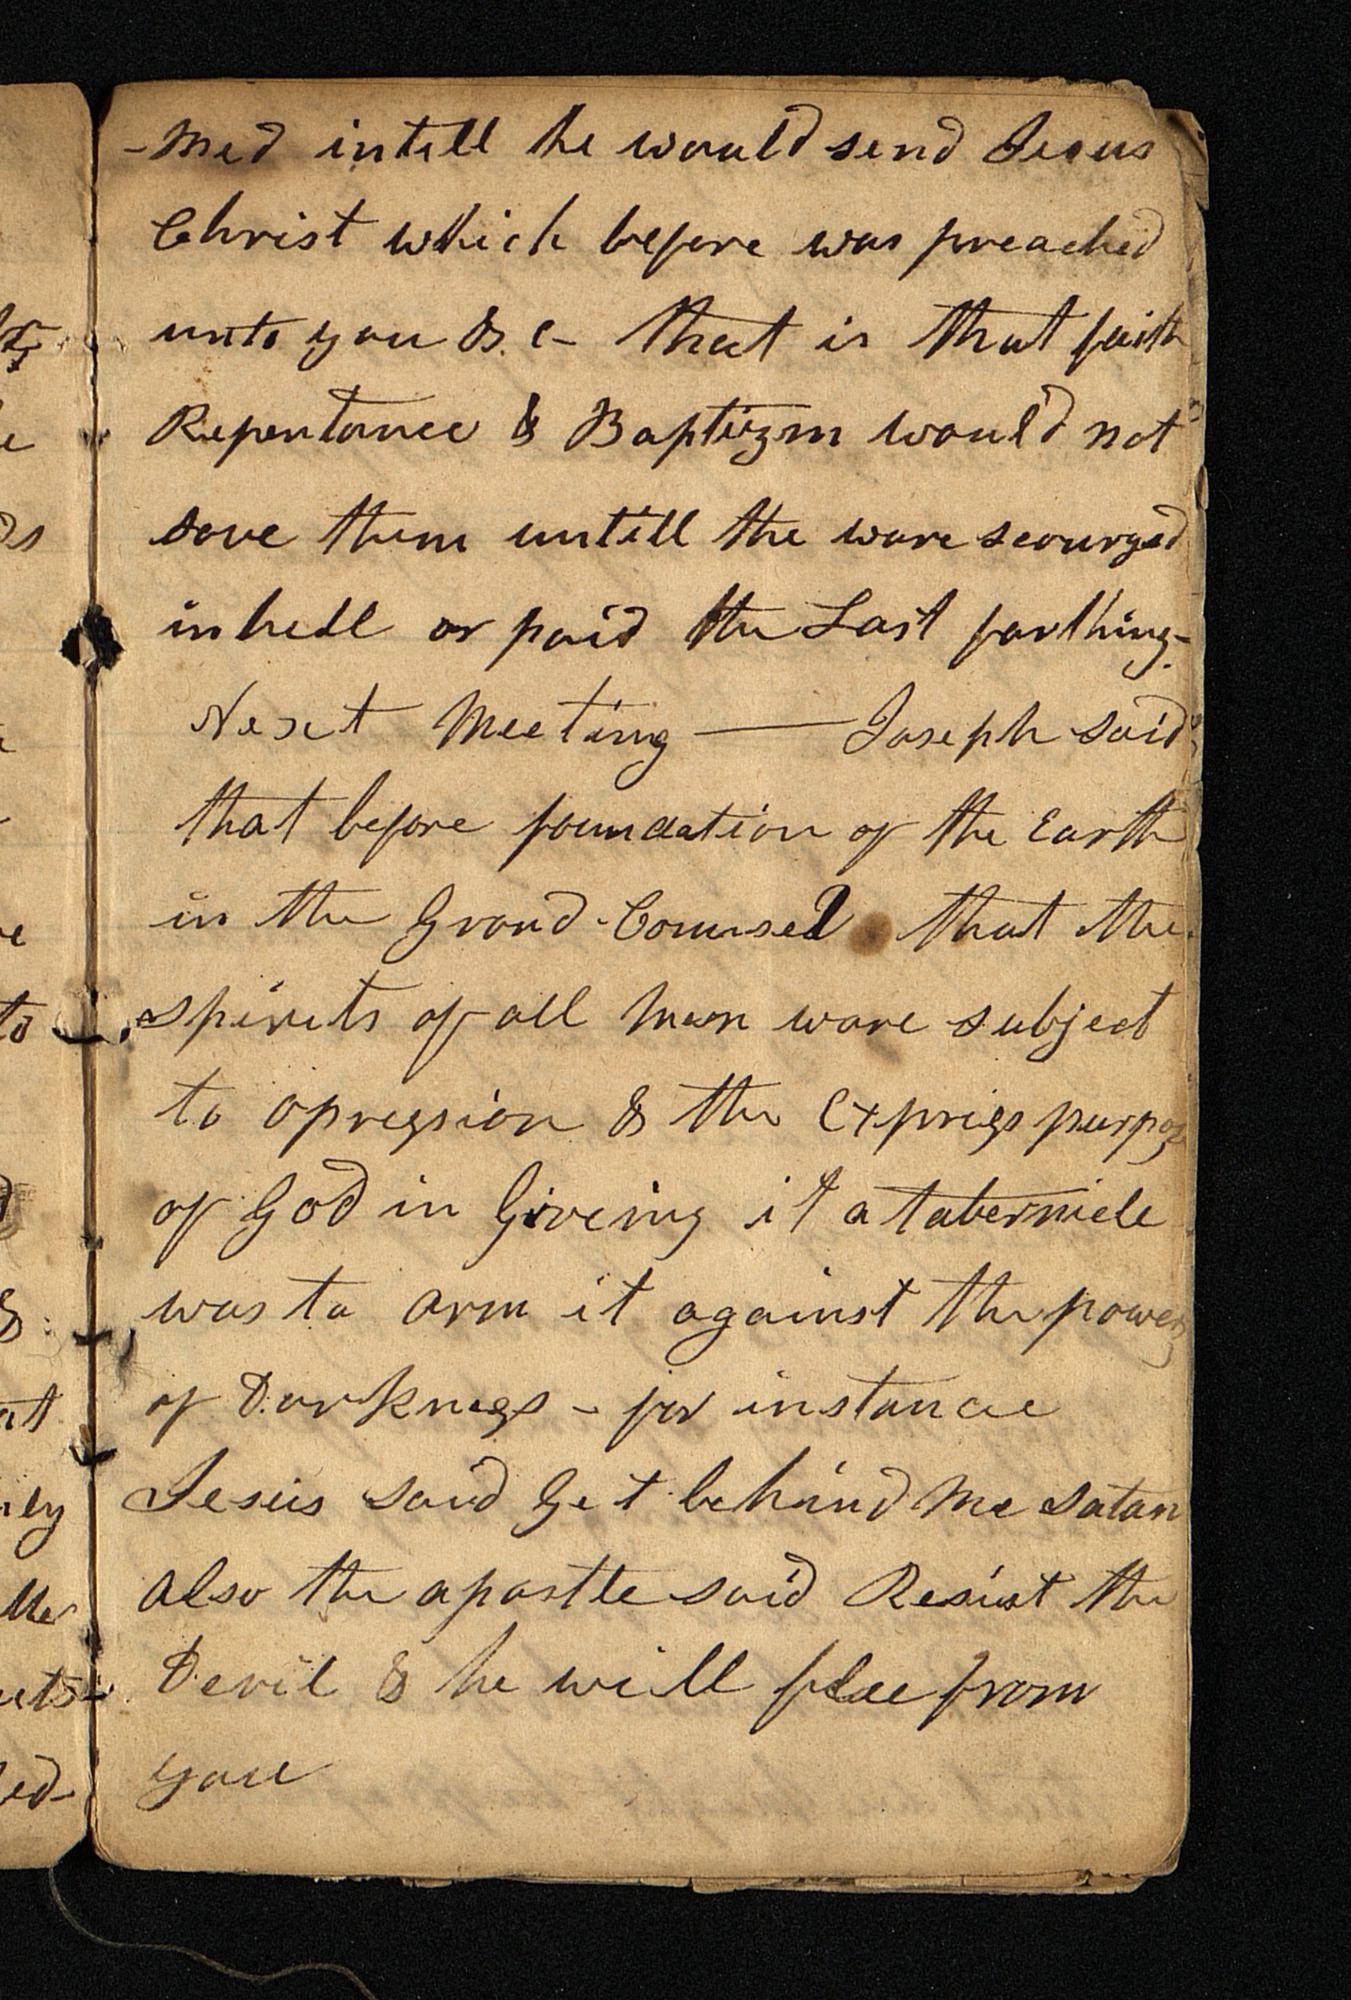 -med intell he would send Jesus
Christ which before was preached
unto you &.c- that is that faith
Repentance & Baptizm would not
save them untill the ware scourged
in hell or paid the Last farthing-
Next Meeting — Joseph said
that before foundation of the Earth
in the Grand Counsel that the
spirits of all Men ware subject
to opression & the express purpose
of God in Giveing it a tabernicle
was to arm it against the power
of Darkness - for instance
Jesus said Get behind me Satan
also the apostle said Resist the
Devil & he will flee from
you